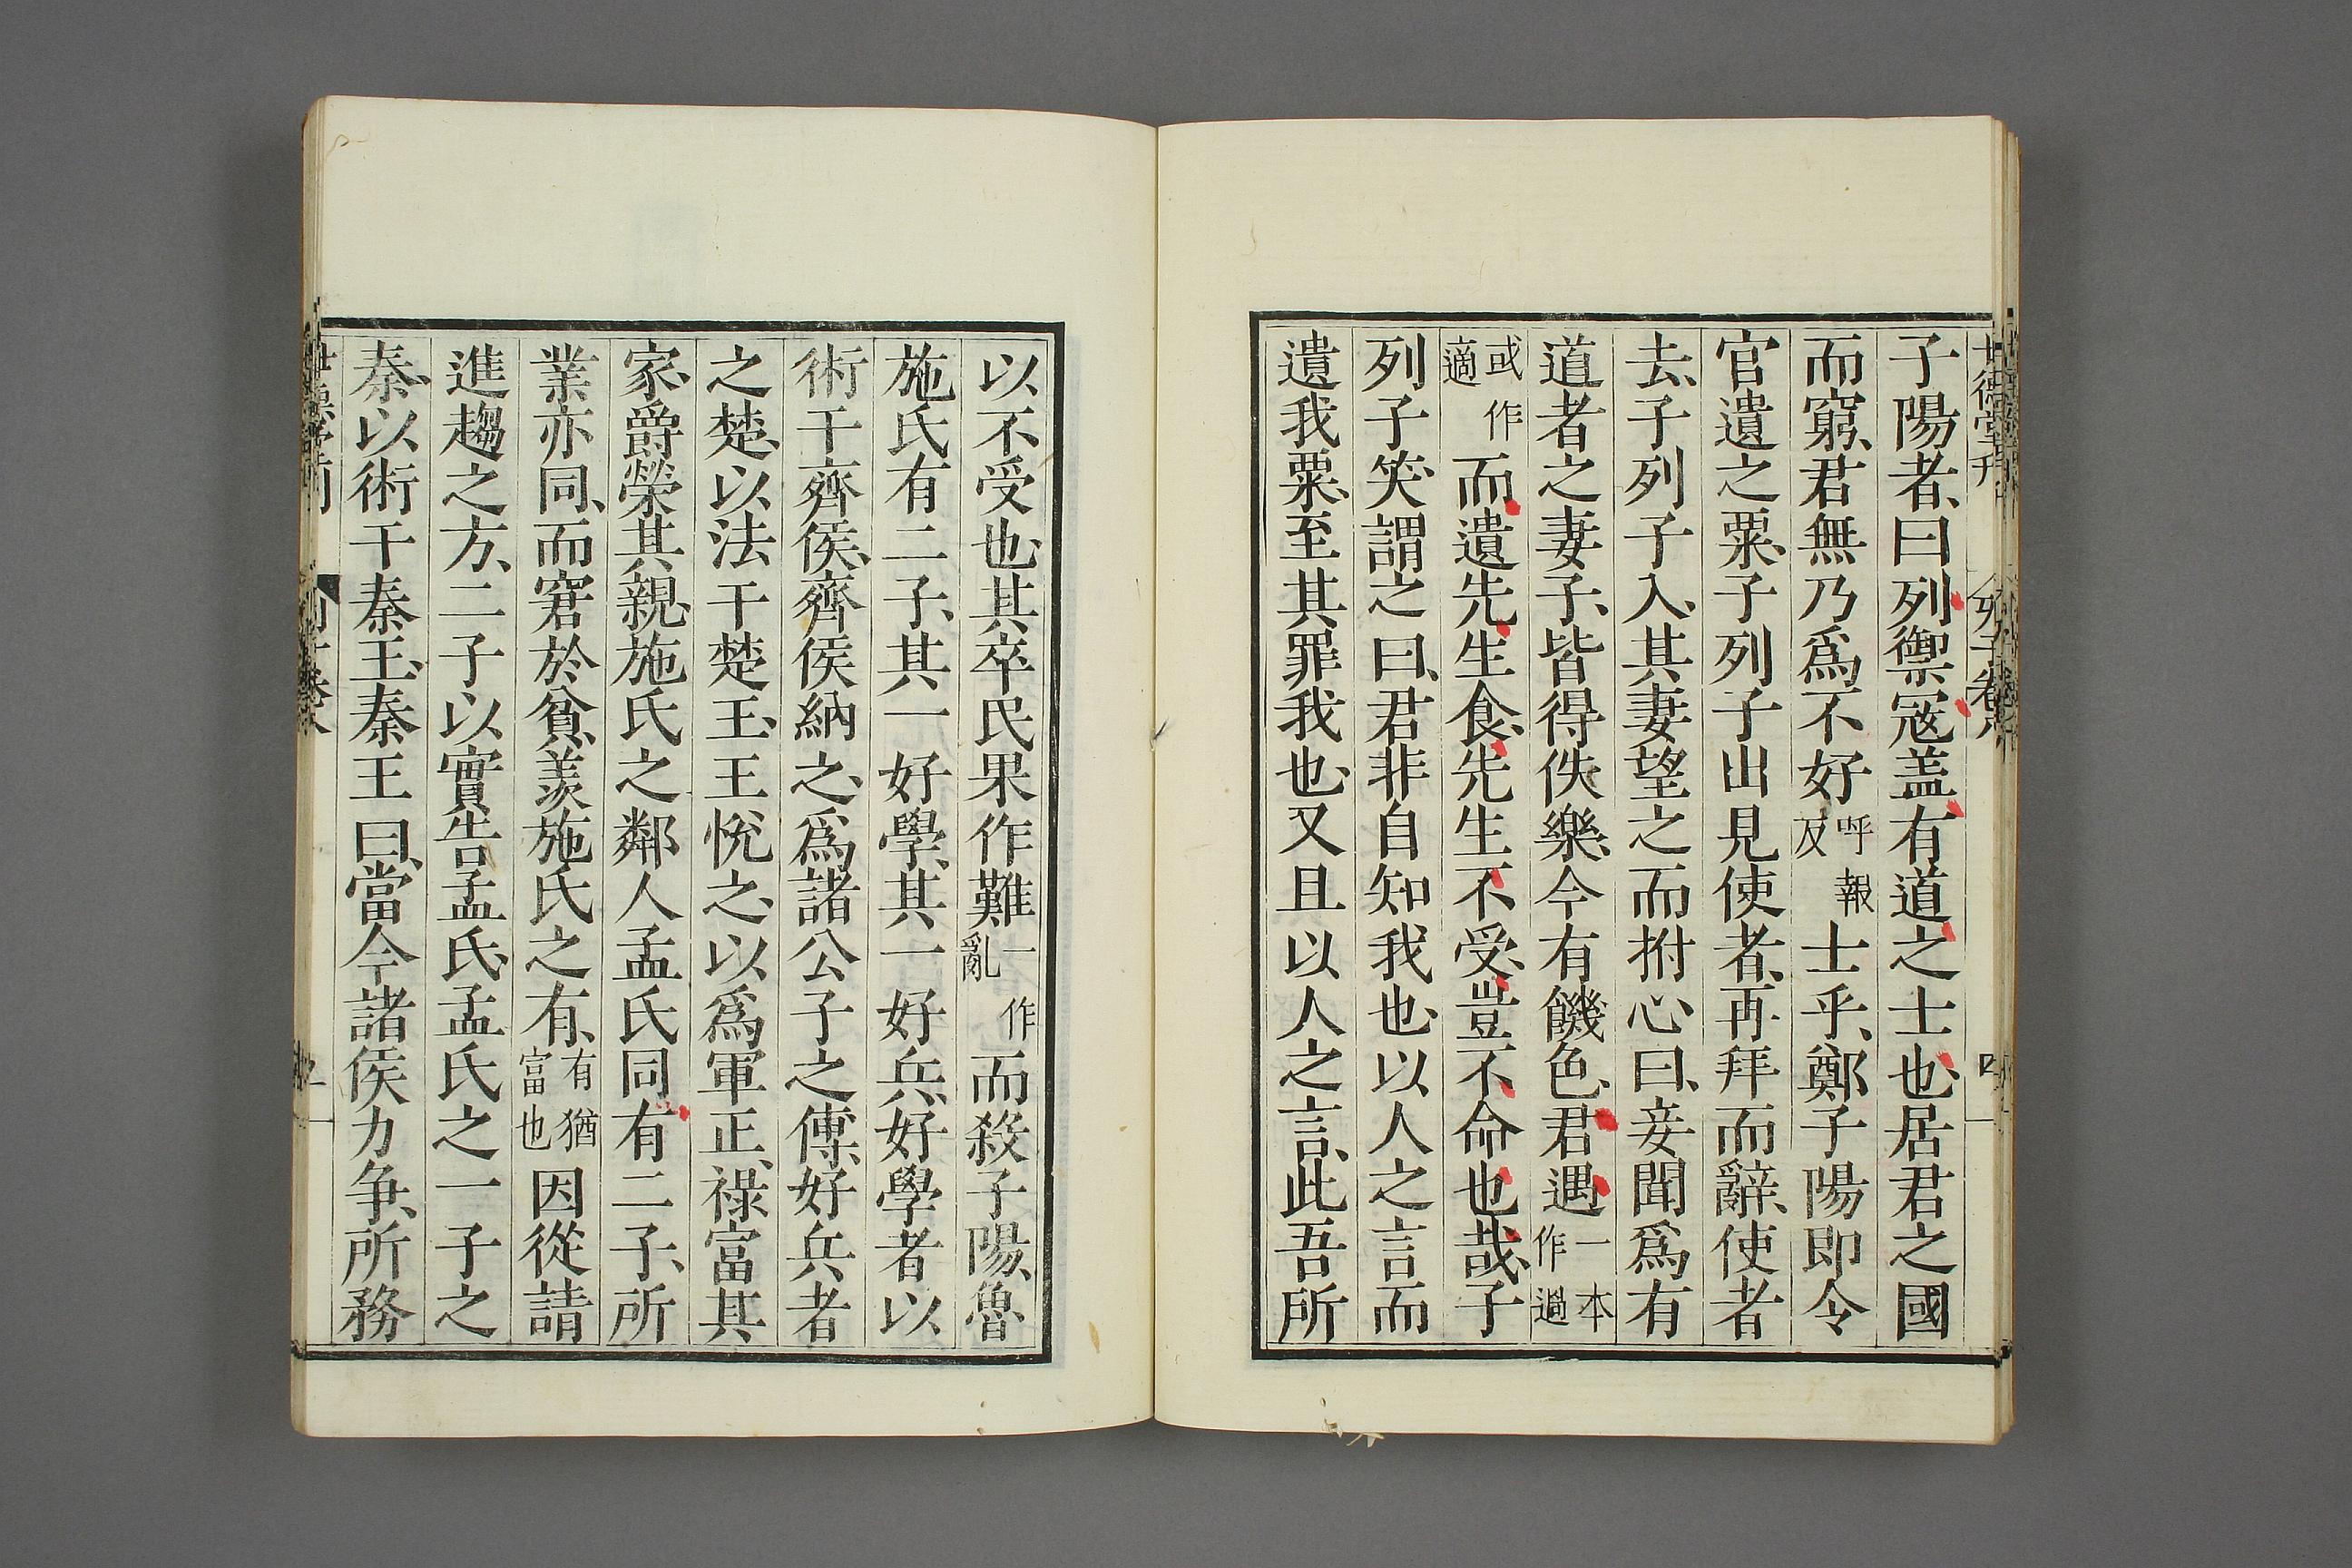 子陽者、曰列禦寇盖有道之士也、居君之國
而窮、君無乃爲不好呼報及士乎、鄭子陽即令
官遺之粟、子列子出見使者、再拜而辭、使者
去、子列子入、其妻望之而拊心、曰、妾聞爲有
道者之妻子、皆得佚樂、今有饑色、君遇一本作過
或作適而遺先生食、先生不受、豈不命也哉、子
列子笑、謂之曰、君非自知我也、以人之言而
遺我粟、至其罪我也、又且以人之言、此吾所
以不受也、其卒民果作難一作亂而殺子陽、魯
施氏有二子、其一好學、其一好兵、好學者以
術干齊侯、齊侯納之、爲諸公子之傅、好兵者
之楚、以法干楚王、王悅之、以爲軍正、祿富其
家、爵榮其親、施氏之鄰人孟氏同有二子、所
業亦同、而窘於貧、羨施氏之有、有猶富也因從請
進趨之方、二子以實告孟氏、孟氏之一子之
秦、以術干秦王、秦王曰、當今諸侯力争、所務